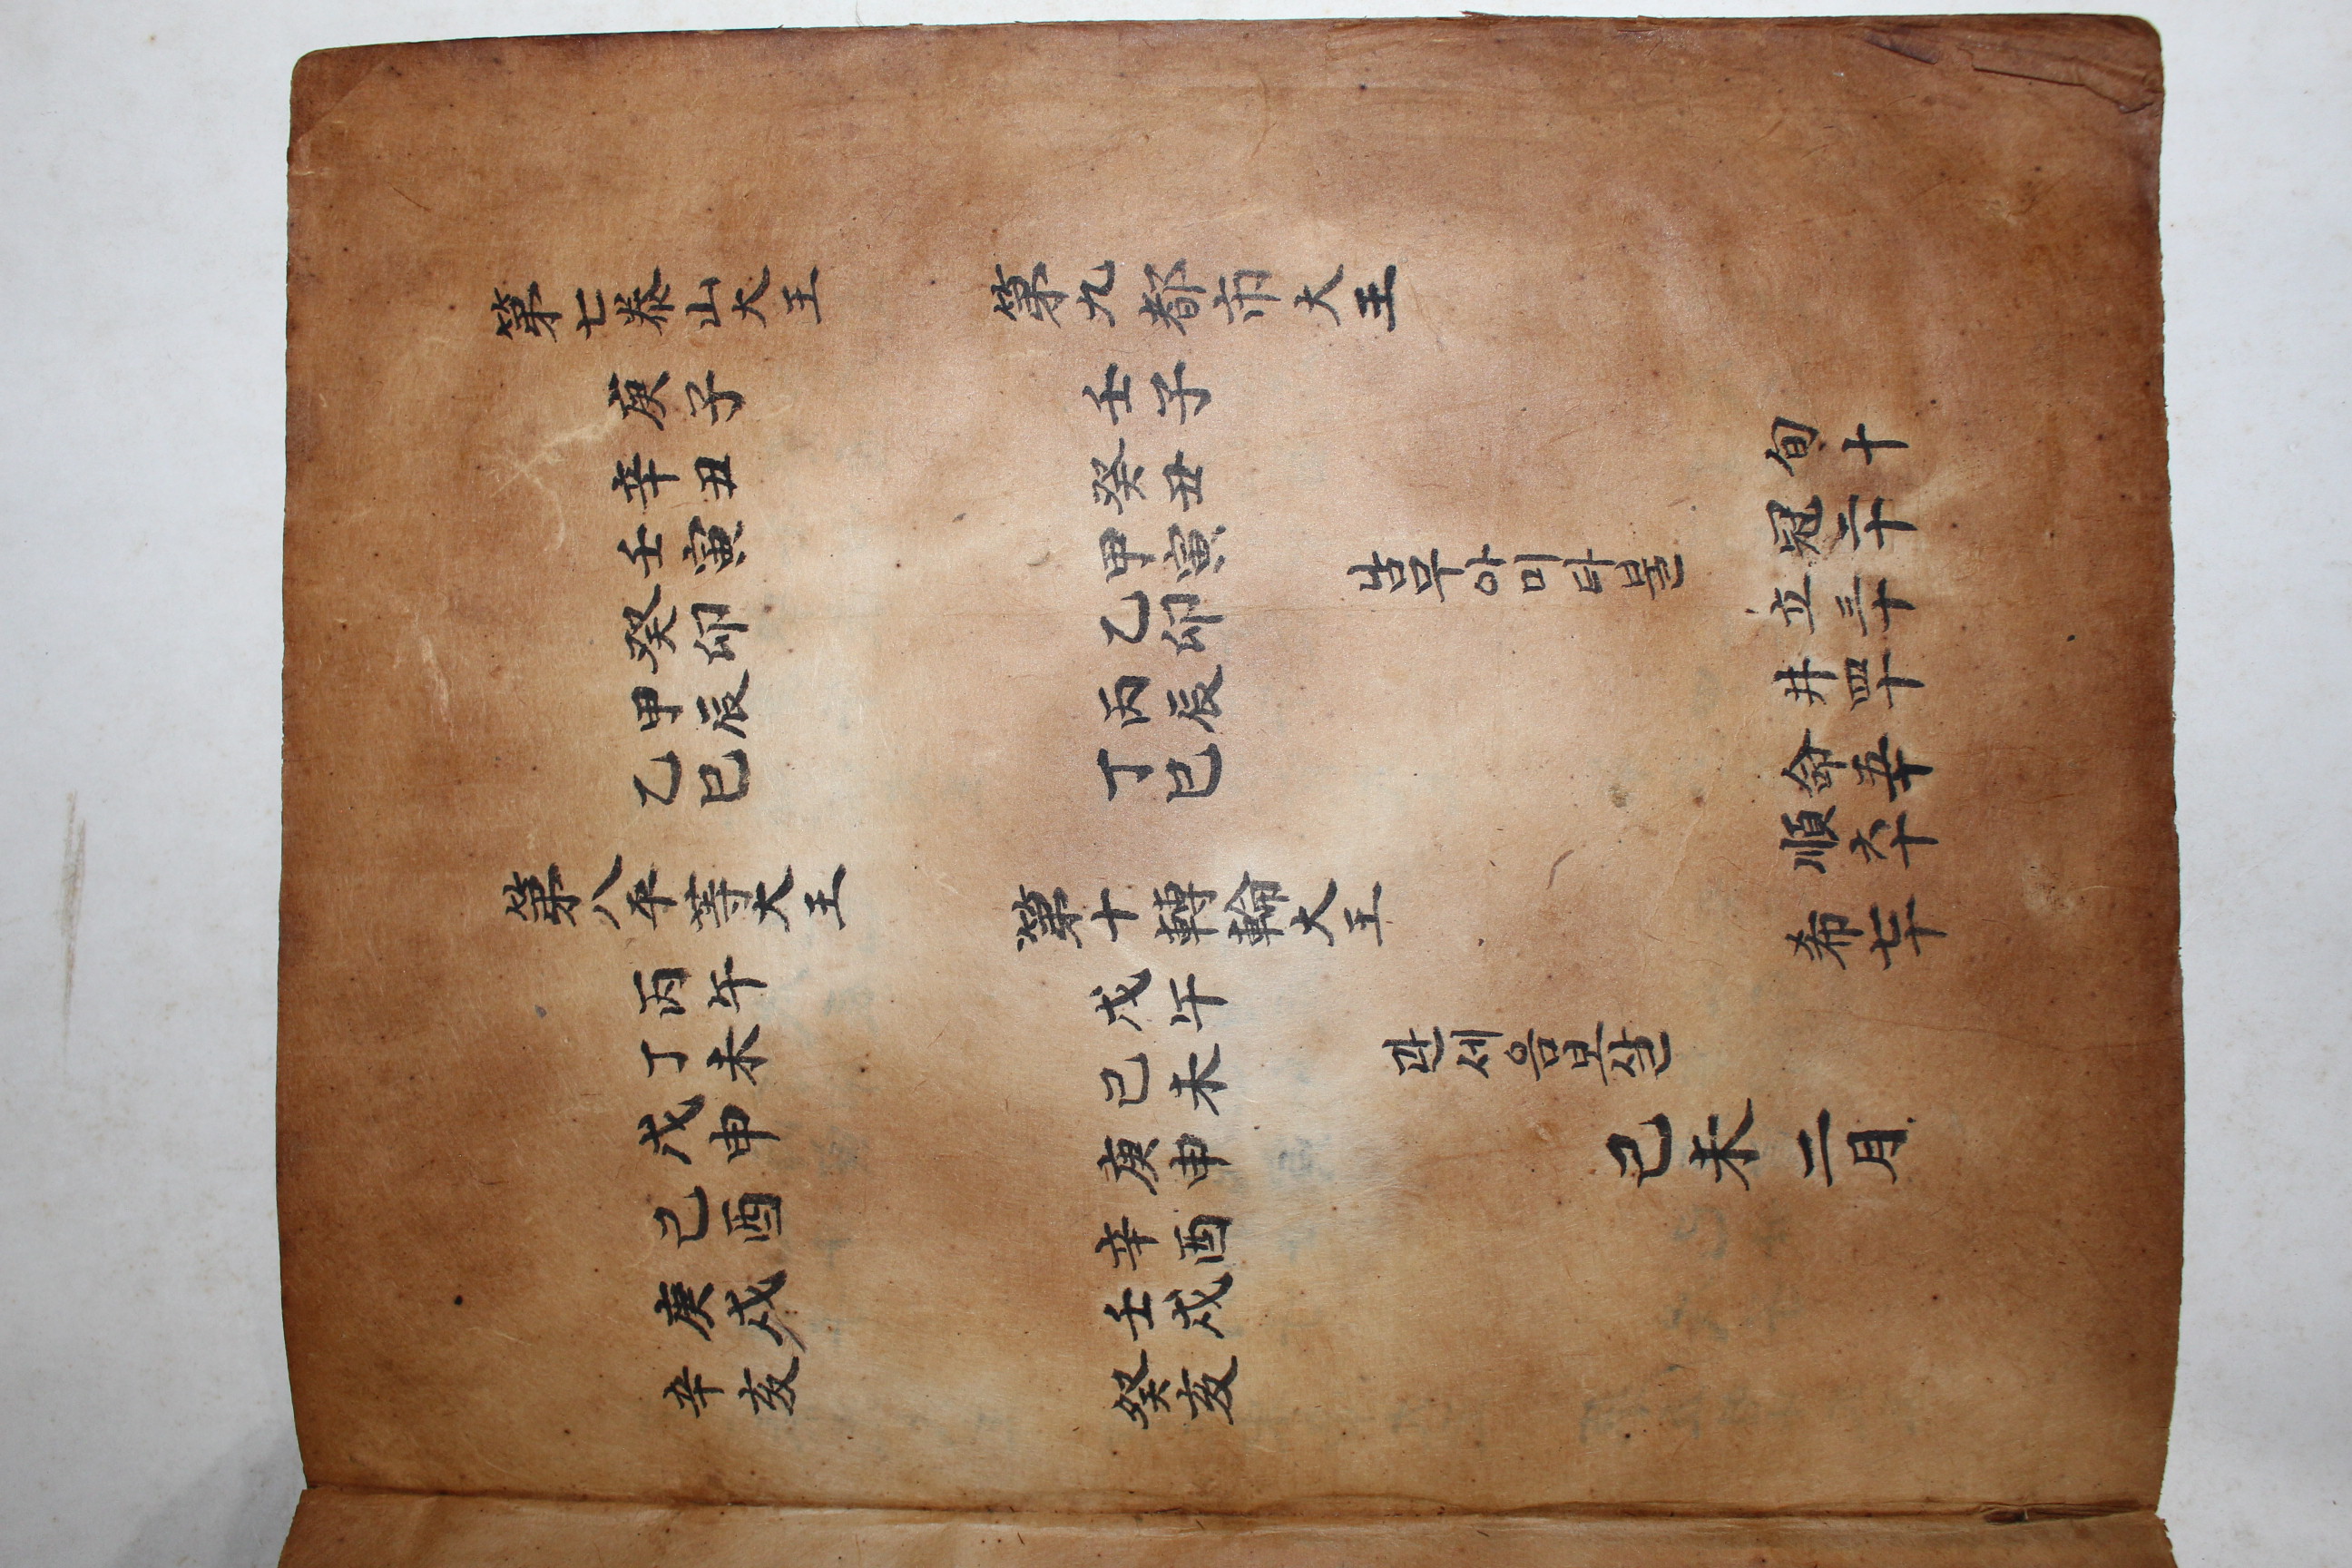 第七泰山大王
庚子
辛丑
壬寅
癸卯
甲辰
乙巳
第八平等大王
丙午
丁未
戊申
己酉
庚戌
辛亥
第九都市大王
壬子
癸丑
甲寅
乙卯
丙辰
丁巳
第十轉輪大王
戊午
己未
庚申
辛酉
壬戌
癸亥
남무아미타불
관세음보살
旬十
冠二十
立三十
井四十
命五十
順六十
希七十
己未二月